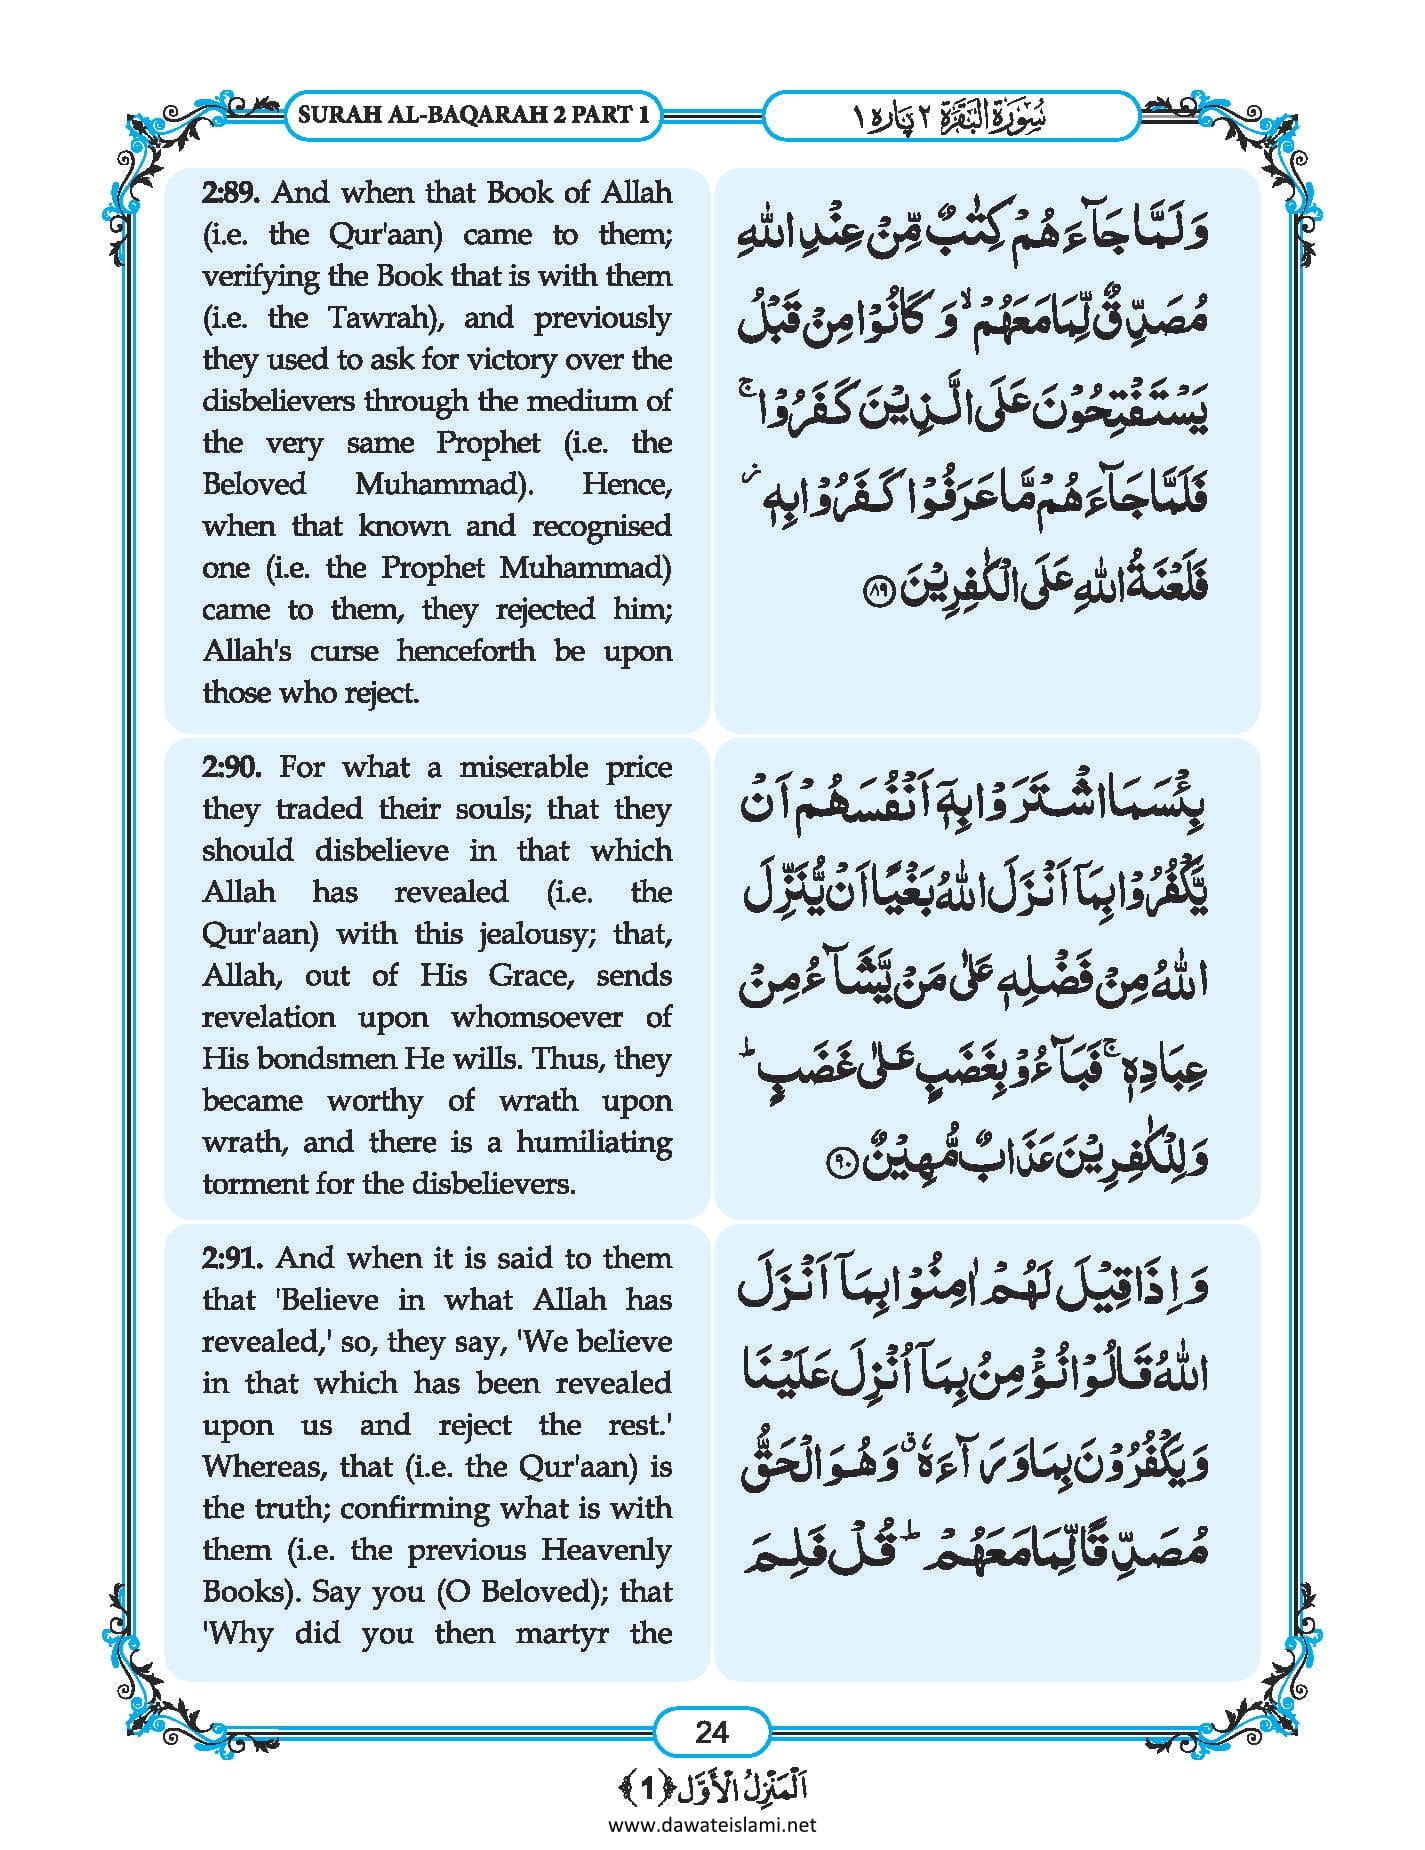 SURAH AL-BAQARAH 2 PART 1
سُوْرَةُ الْبَقَرَة ٢ پارہ ١
2:89. And when that Book of Allah
(i.e. the Qur'aan) came to them;
verifying the Book that is with them
(i.e. the Tawrah), and previously
they used to ask for victory over the
disbelievers through the medium of
the very same Prophet (i.e. the
Beloved Muhammad). Hence,
when that known and recognised
one (i.e. the Prophet Muhammad)
came to them, they rejected him;
Allah's curse henceforth be upon
those who reject.
وَلَمَّا جَآءَهُمْ كِتٰبٌ مِّنْ عِنْدِ اللّٰهِ
مُصَدِّقٌ لِّمَا مَعَهُمْ ۙ وَكَانُوْا مِنْ قَبْلُ
يَسْتَفْتِحُوْنَ عَلَى الَّذِيْنَ كَفَرُوْا ۚ
فَلَمَّا جَآءَهُمْ مَّا عَرَفُوْا كَفَرُوْا بِهٖ ؗ
فَلَعْنَةُ اللّٰهِ عَلَى الْكٰفِرِيْنَ ﴿٨٩﴾
2:90. For what a miserable price
they traded their souls; that they
should disbelieve in that which
Allah has revealed (i.e. the
Qur'aan) with this jealousy; that,
Allah, out of His Grace, sends
revelation upon whomsoever of
His bondsmen He wills. Thus, they
became worthy of wrath upon
wrath, and there is a humiliating
torment for the disbelievers.
بِئْسَمَا اشْتَرَوْا بِهٖۤ اَنْفُسَهُمْ اَنْ
يَّكْفُرُوْا بِمَاۤ اَنْزَلَ اللّٰهُ بَغْيًا اَنْ يُّنَزِّلَ
اللّٰهُ مِنْ فَضْلِهٖ عَلٰى مَنْ يَّشَآءُ مِنْ
عِبَادِهٖ ۚ فَبَآءُوْ بِغَضَبٍ عَلٰى غَضَبٍ ؕ
وَلِلْكٰفِرِيْنَ عَذَابٌ مُّهِيْنٌ ﴿٩٠﴾
2:91. And when it is said to them
that 'Believe in what Allah has
revealed,' so, they say, 'We believe
in that which has been revealed
upon us and reject the rest.'
Whereas, that (i.e. the Qur'aan) is
the truth; confirming what is with
them (i.e. the previous Heavenly
Books). Say you (O Beloved); that
'Why did you then martyr the
وَاِذَا قِيْلَ لَهُمْ اٰمِنُوْا بِمَاۤ اَنْزَلَ
اللّٰهُ قَالُوْا نُؤْمِنُ بِمَاۤ اُنْزِلَ عَلَيْنَا
وَيَكْفُرُوْنَ بِمَا وَرَآءَهٗ ۗ وَهُوَ الْحَقُّ
مُصَدِّقًا لِّمَا مَعَهُمْ ؕ قُلْ فَلِمَ
24
اَلْمَنْزِلُ الْاَوَّل ﴿1﴾
www.dawateislami.net